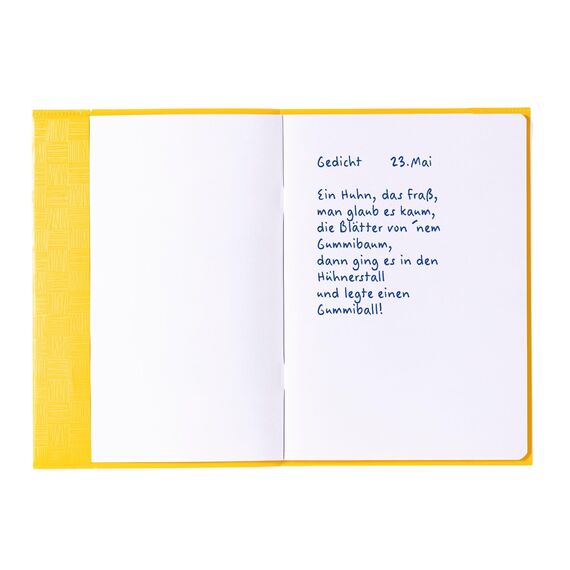 Gedicht 23.Mai
Ein Huhn, das Fraß,
man glaub es kaum,
die Blätter von ´nem
Gummibaum,
dann ging es in den
Hühnerstall
und legte einen
Gummiball!